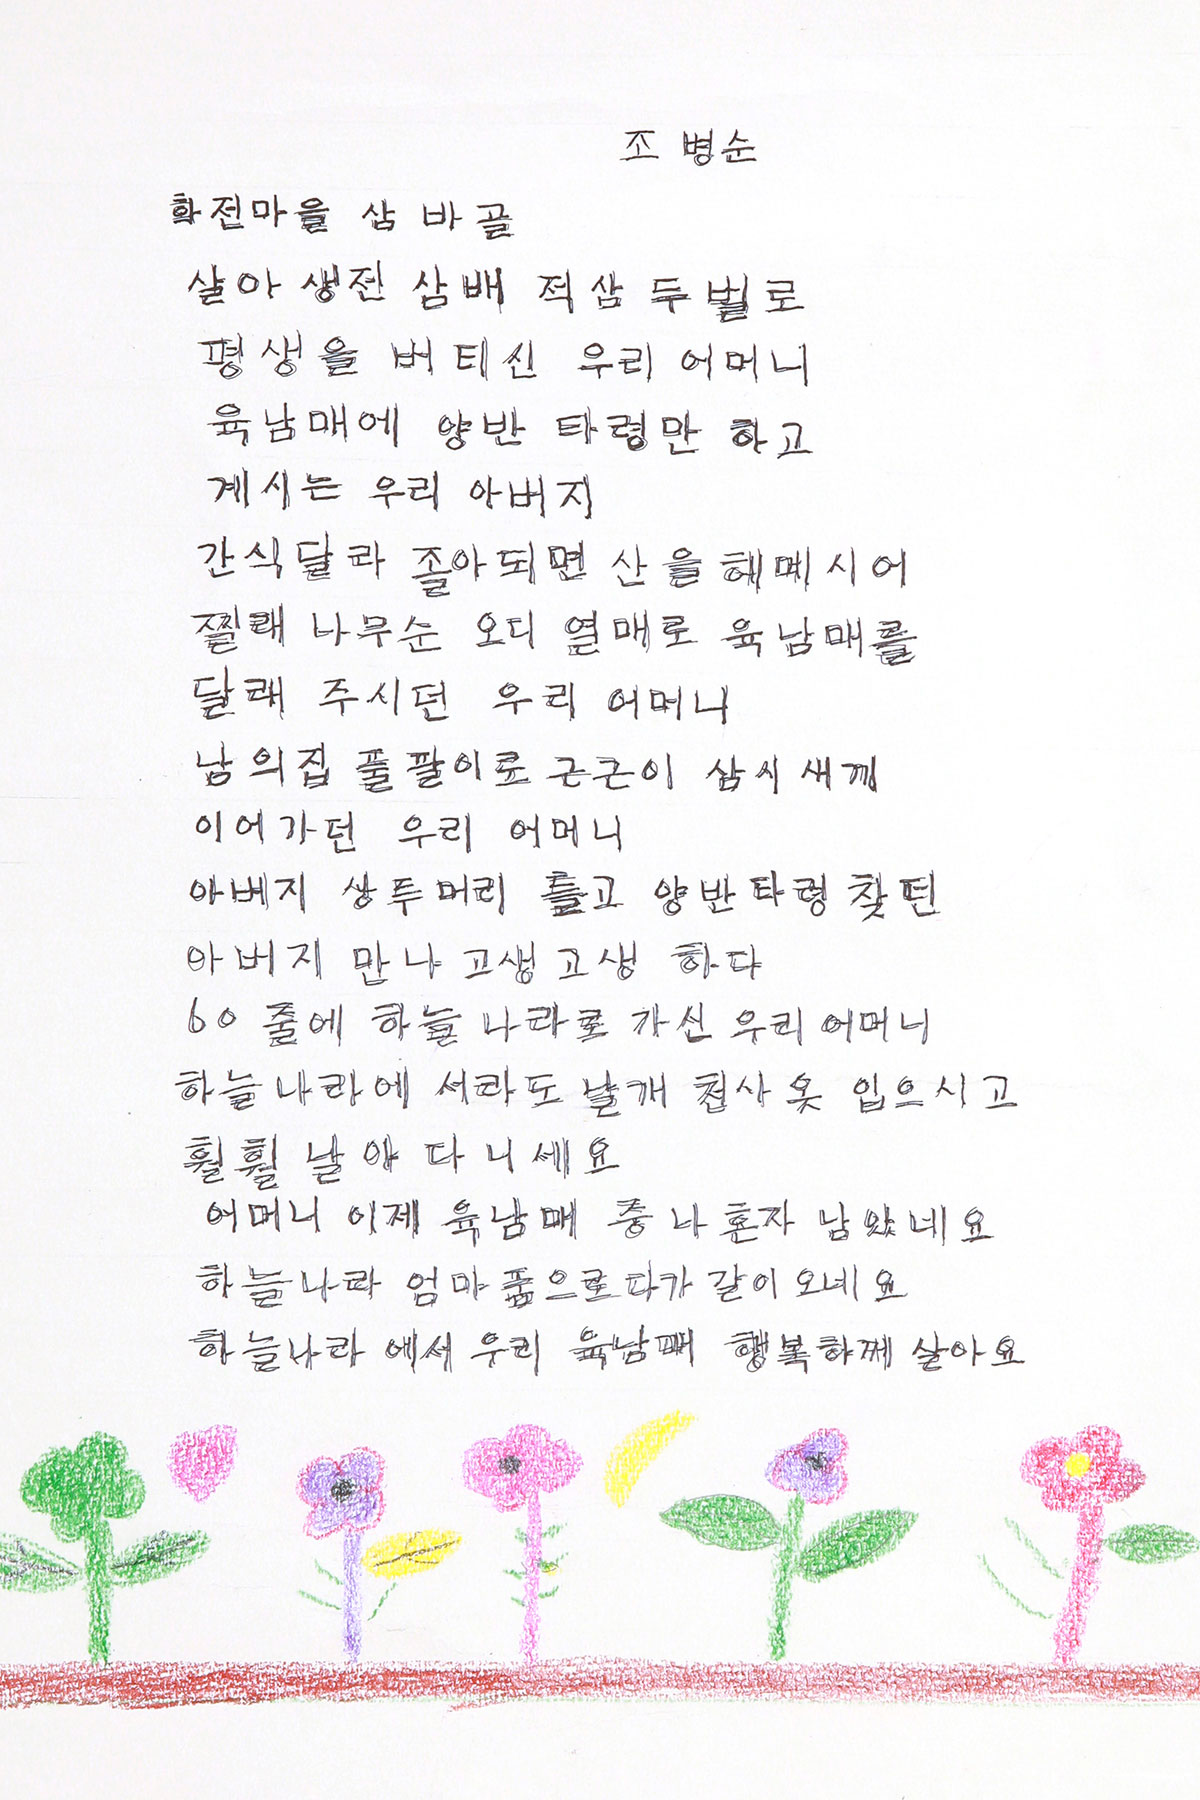 조 병순
화전마을 삼 바골
살아 생전 삼배 적삼 두 벌로
평생을 버 티신 우리 어머니
육남매에 양반 타령만 하고
계시는 우리 아버지
간식달라 졸아되면 산을 헤메시어
찔래 나무순 오디 열매로 육남매를
달래 주시던 우리 어머니
남의집 품팔이로 근근이 삼시 새끼
이어가던 우리 어머니
아베지 상투머리 틀고 양반타령 찾던
아버지 만나 고생고생 하다
60 줄에 하늘 나라로 가신 우리 어머니
하늘나라에 서라도 날개 첩사 옷 입으시고
훨훨 날아 다니세요
어머니 이제 육남매 중 나 혼자 남았네요
하늘나라 엄마 품으로 다가 같이 오네요
하늘나라 에서 우리 육남매 행복하께 살아요